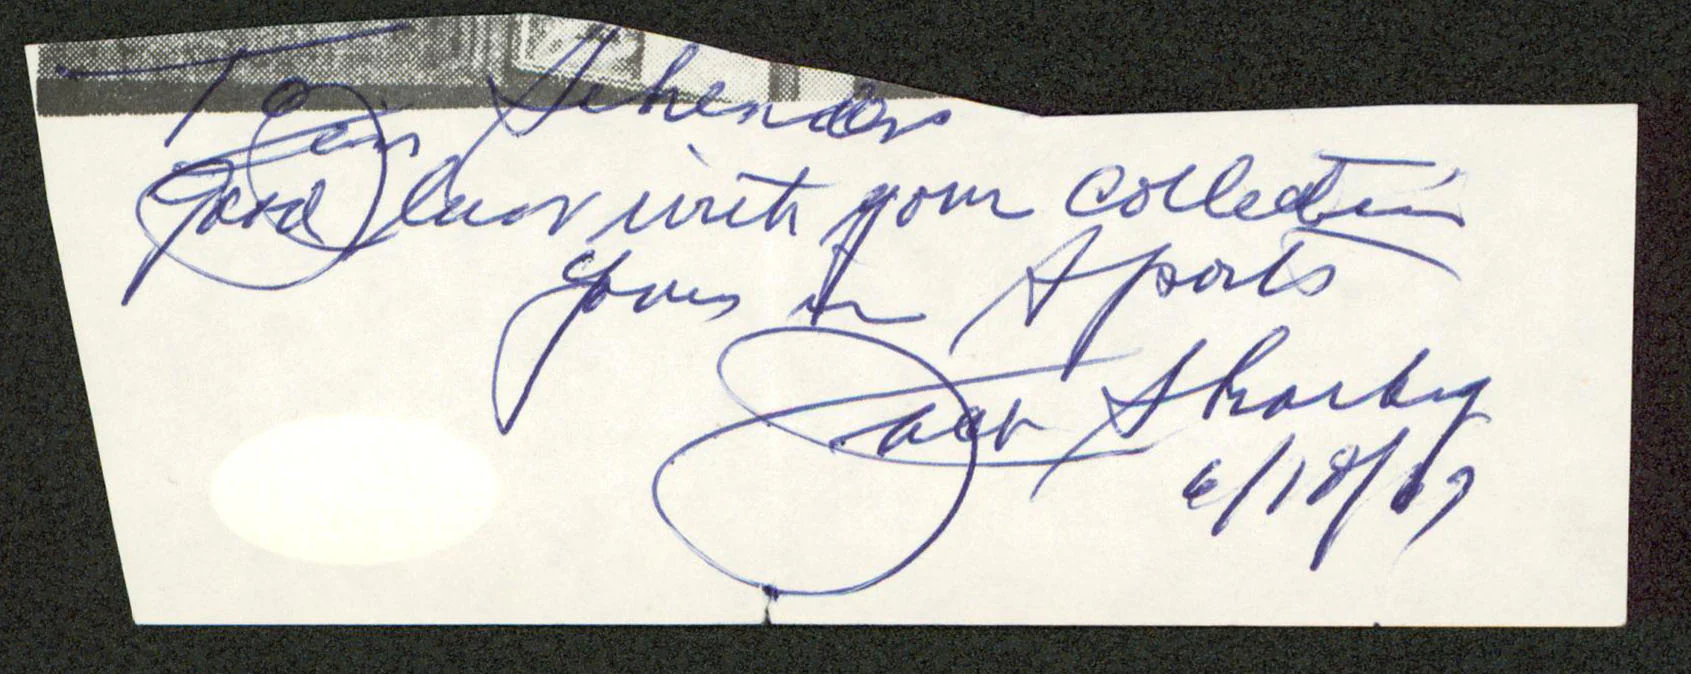 To Jim
Good luck with your collection
Yours in Sports
Jack Sharkey
6/18/67